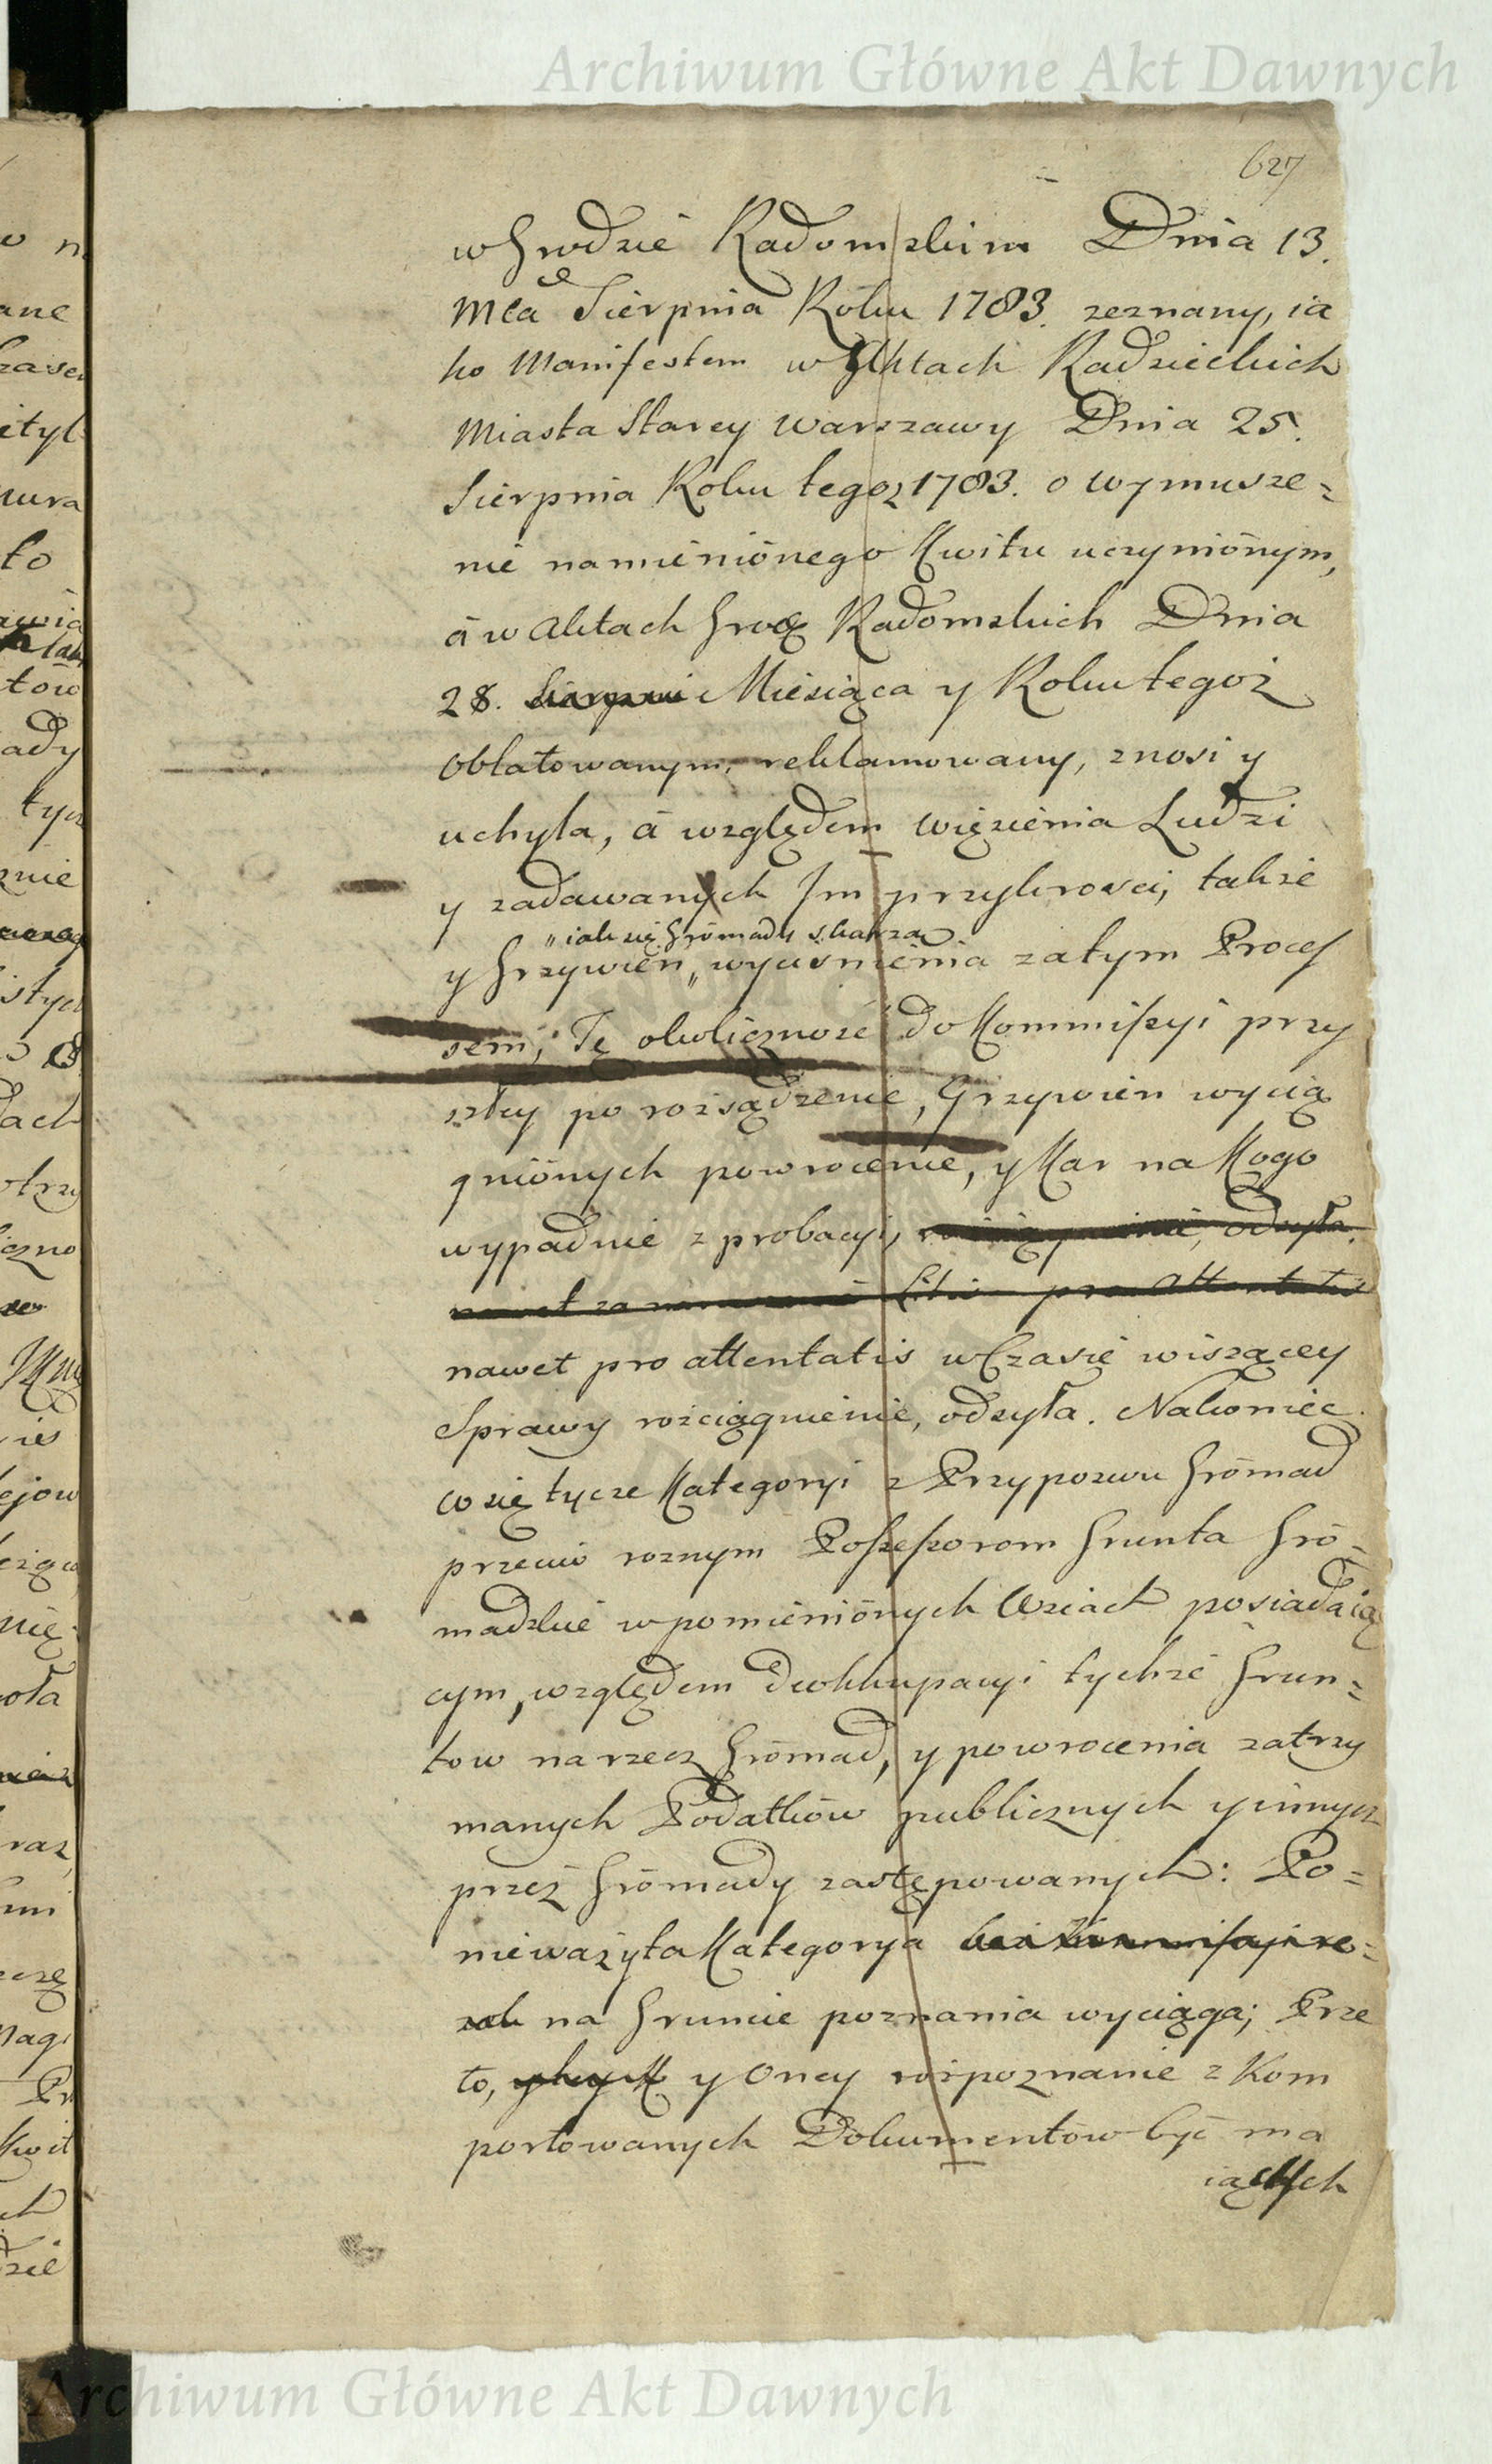 Archiwum Główne Akt Dawnych
627
w Grodzie Radomskim Dnia 13.
Mca Sierpnia Roku 1783. zeznany, ia
ko Manifestem w Aktach Radzieckich
Miasta Starey Warszawy Dnia 25.
Sierpnia Roku tegoż 1783. o wymusze=
nie namieniónego Kwitu uczyniónym,
á w Aktach Grod Radomskich Dnia
28. Sierpni Miesiąca y Roku tegoż
oblatowanym, reklamowany, znosi y
uchyla, á względem więzienia Ludzi
y zadawanych Im przykrosci, także
„ iak się Grómady skarzą
y Grzywien „ wyciśnienia zatym Proces
sem, Tę okoliczność do Kommissyi przy
szłey po rozsądzenie, Grzywien wycią
gniónych powrocenie, y Kar na Kogo
wypadnie z probacyi, odsyła.
Litis pro Attentatis
nawet pro attentatis w Czasie wiszącey
Sprawy rozciągnienie, odsyła. Nakoniec
co się tycze Kategoryi z Przypozwu Grómad
przeciw roznym Possessorom Grunta Gró=
madzkie w pomieniónych Wsiach posiadaią
cym, względem deokkupacyi tychże Grun=
tow na rzecz Grómad, y powrocenia zatrzy
manych Podatków publicznych y innych
przez Grómady zastępowanych: Po=
nieważ ta Kategorya bez Kommissyi ro=
zek na Gruncie poznania wyciąga; Prze
to, y Oney rozpoznanie z Kom
portowanych Dokumentów być ma
iących
Archiwum Główne Akt Dawnych